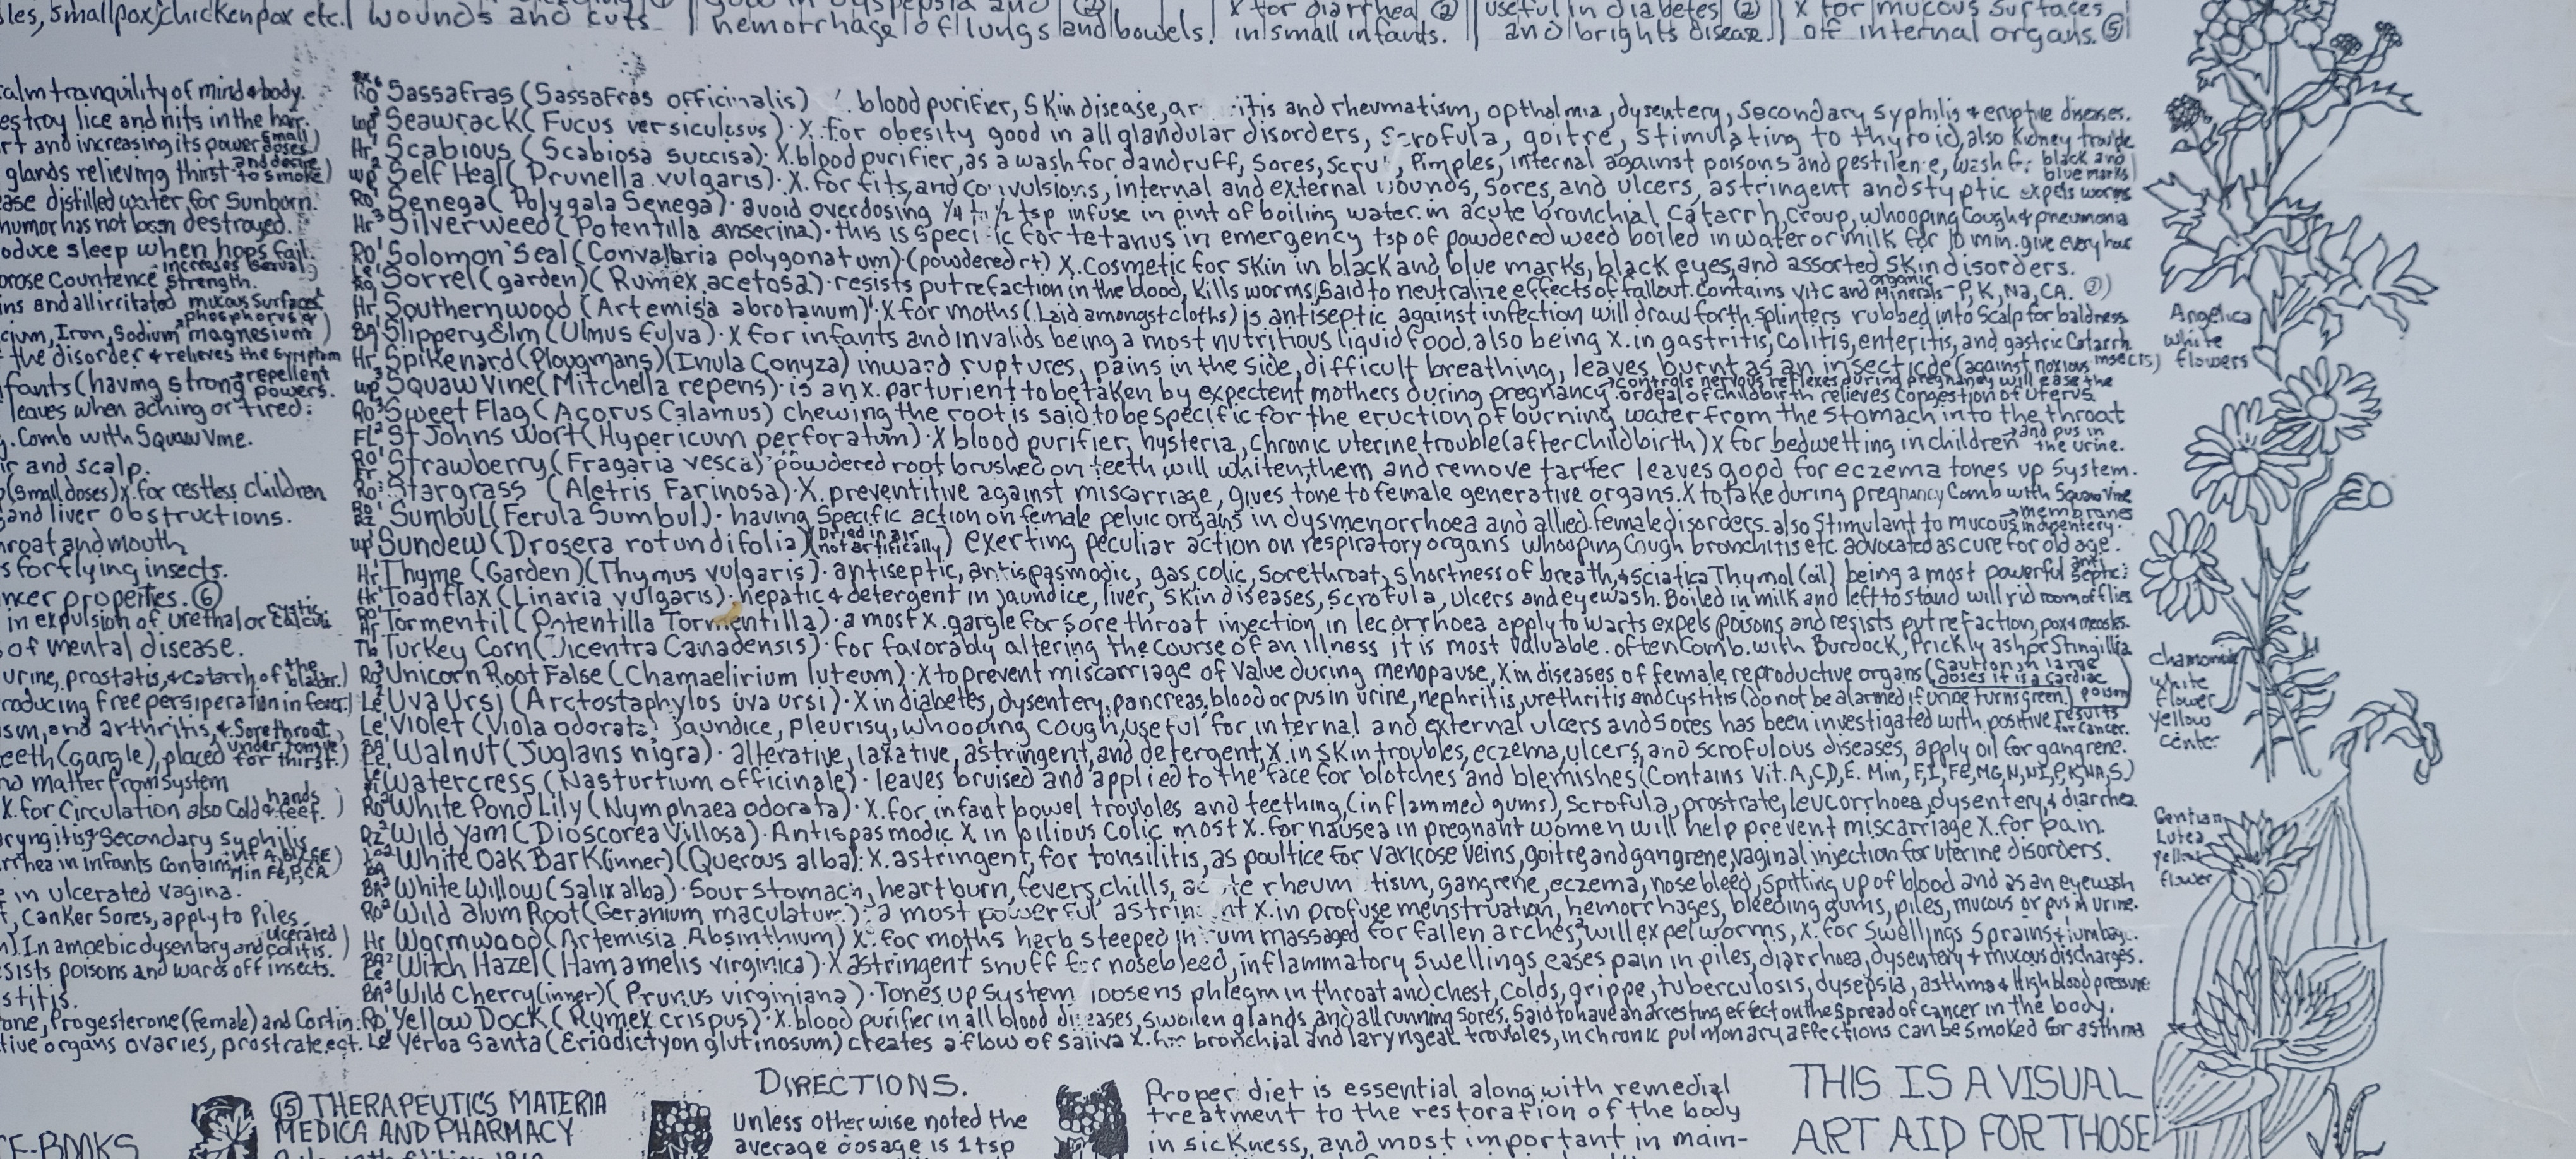 les, Smallpox, chickenpox etc. wounds and cuts
hemorrhage of lungs and bowels.
X for diarrhea ② in small infants.
useful in diabetes ② and brights disease.
X for mucous surfaces of internal organs. ⑤
alm tranquility of mind & body.
estroy lice and nits in the hair.
rt and increasing its power small doses)
glands relieving thirst and desire to smoke)
ase distilled water for Sunburn.
humor has not been destroyed.
oduce sleep when hops fail.
orose Countence increases sexual strength.
ins and all irritated mucous surfaces
cium, Iron, Sodium phosphorus & magnesium)
the disorder & relieves the symptom
fants (having strong repellent powers.
leaves when aching or tired.
. Comb with Squaw Vine.
ir and scalp.
(small doses) X. for restless children
and liver obstructions.
hroat and mouth
s for flying insects.
ncer properties. ⑥
in expulsion of urethal or cystic calculi
of mental disease.
urine, prostatis, & catarrh of the bladder.)
roducing free persiperation in fever.)
ism, and arthritis, & Sore throat.
eeth (gargle), placed under tongue for thirst.)
no matter from System
X. for Circulation also Cold hands & feet. )
aryngitis & Secondary Syphilis
rrhea in infants Contains
in ulcerated vagina.
, Canker Sores, apply to Piles
) In amoebic dysentary and ulcerated colitis.
sists poisons and wards off insects.
stitis.
one, Progesterone (female) and Cortin.
tive organs ovaries, prostrate ect.
Ro Sassafras (Sassafras officinalis) blood purifier, Skin disease, ar itis and rheumatism, opthalmia, dysentery, Secondary Syphilis & eruptive diseases.
wp Seawrack (Fucus versiculosus) · X. for obesity good in all glandular disorders, scrofula, goitre, stimulating to thyroid, also Kidney trouble
Hr Scabious (Scabiosa succisa) · X. blood purifier, as a wash for dandruff, Sores, Scru , Pimples, internal against poisons and pestilen e, wash f black and blue marks)
wp Self Heal (Prunella vulgaris) · X. for fits, and convulsions, internal and external wounds, sores, and ulcers, astringent and styptic expels worms
Ro Senega (Polygala Senega) · avoid overdosing 1/4 to 1/2 tsp infuse in pint of boiling water. in acute bronchial Catarrh, Croup, whooping Cough & pneumona
Hr Silverweed (Potentilla anserina) · this is speci ic for tetanus in emergency tsp of powdered weed boiled in water or milk for 10 min. give every hour
Ro Solomon Seal (Convallaria polygonatum) · (powdered rt) X. Cosmetic for Skin in black and blue marks, black eyes, and assorted skin disorders.
Sorrel (garden) (Rumex acetosa) · resists putrefaction in the blood, Kills worms, Said to neutralize effects of fallout. Contains Vit C and organic Minerals - P, K, Na, CA.
Hr Southernwood (Artemisia abrotanum) · X for moths (Laid amongst cloths) is antiseptic against infection will draw forth splinters rubbed into Scalp for baldness
BA Slippery Elm (Ulmus fulva) · X for infants and invalids being a most nutritious liquid food. also being X. in gastritis, colitis, enteritis, and gastric Catarrh
Hr Spikenard (Plougmans) (Inula Conyza) inward ruptures, pains in the side, difficult breathing, leaves burnt as an insecticde (against noxious insects)
wp Squaw Vine (Mitchella repens) · is an X. parturient to be taken by expectent mothers during pregnancy controls nervous reflexes during pregnancy will ease the ordeal of childbirth relieves congestion of uterus.
Ro Sweet Flag (Acorus Calamus) chewing the root is said to be specific for the eruction of burning water from the stomach into the throat
FL St Johns Wort (Hypericum perforatum) · X blood purifier, hysteria, chronic uterine trouble (after childbirth) X for bedwetting in children and pus in the urine.
Strawberry (Fragaria vesca) powdered root brushed on teeth will whiten them and remove tarter leaves good for eczema tones up System.
Ro Stargrass (Aletris Farinosa) · X. preventitive against miscarriage, gives tone to female generative organs. X to take during pregnancy Comb with Squaw Vine
Sumbul (Ferula Sumbul) · having Specific action on female pelvic organs in dysmenorrhoea and allied female disorders. also Stimulant to mucous membranes in dysentery.
wp Sundew (Drosera rotundifolia) (Dried in air not artifically) exerting peculiar action on respiratory organs whooping Cough bronchitis etc. advocated as cure for old age.
Hr Thyme (Garden) (Thymus vulgaris) · antiseptic, antispasmodic, gas, colic, sore throat, Shortness of breath, & Sciatica Thymol (oil) being a most powerful anti septic.
Hr Toadflax (Linaria vulgaris) · hepatic & detergent in jaundice, liver, skin diseases, scrofula, ulcers and eyewash. Boiled in milk and left to stand will rid room of flies
Tormentil (Potentilla Tormentilla) · a most X. gargle for sore throat injection in lecorrhoea apply to warts expels poisons and resists putrefaction, pox & measles.
Tb Turkey Corn (Dicentra Canadensis) · for favorably altering the course of an illness it is most valuable. often Comb. with Burdock, Prickly ash or Stingillia
Ro Unicorn Root False (Chamaelirium luteum) · X to prevent miscarriage of value during menopause, X in diseases of female reproductive organs (Caution in large doses it is a cardiac poison)
Le Uva Ursi (Arctostaphylos uva ursi) · X in diabetes, dysentery, pancreas, blood or pus in urine, nephritis, urethritis and Cystitis (do not be alarmed if urine turns green)
Le Violet (Viola odorata) jaundice, pleurisy, whooping cough, useful for internal and external ulcers and sores has been investigated with positive results for cancer.
Walnut (Juglans nigra) · alterative, laxative, astringent, and detergent, X. in skin troubles, eczema, ulcers, and scrofulous diseases, apply oil for gangrene.
Watercress (Nasturtium officinale) · leaves bruised and applied to the face for blotches and blemishes (Contains Vit. A, C, D, E. Min, F, I, FE, MG, N, NI, P, K, NA, S)
Ro White Pond Lily (Nymphaea odorata) · X. for infant bowel troubles and teething (inflammed gums), scrofula, prostrate, leucorrhoea, dysentery, & diarrhea
Rz Wild Yam (Dioscorea Villosa) · Antispasmodic X in bilious Colic most X. for nausea in pregnant women will help prevent miscarriage X. for pain.
White Oak Bark (inner) (Querous alba): X. astringent, for tonsilitis, as poultice for varicose veins, goitre, and gangrene, vaginal injection for uterine disorders.
BA White Willow (Salix alba) · Sour stomach, heartburn, fevers, chills, ac te rheum tism, gangrene, eczema, nose bleed, spitting up of blood and as an eyewash
Ro Wild alum Root (Geranium maculatum) : a most powerful astrin nt X. in profuse menstruation, hemorrhages, bleeding gums, piles, mucous or pus in urine.
Hr Wormwood (Artemisia Absinthium) X. for moths herb steeped in rum massaged for fallen arches, will expel worms, X. for swellings Sprains & lumbag
Witch Hazel (Hamamelis virginica) · X astringent snuff for nosebleed, inflammatory Swellings eases pain in piles, diarrhoea, dysentery & mucous discharges.
BA Wild Cherry (inner) (Prunus virginiana) · Tones up System loosens phlegm in throat and chest, Colds, grippe, tuberculosis, dysepsia, asthma & High blood pressure
Ro Yellow Dock (Rumex crispus) · X. blood purifier in all blood diseases, swollen glands and all running sores. Said to have an arresting effect on the spread of cancer in the body.
Le Yerba Santa (Eriodictyon glutinosum) creates a flow of saliva X. for bronchial and laryngeal troubles, in chronic pulmonary affections can be smoked for asthma
Angelica
white
flowers
chamomile
white
flower
yellow
center
Gentian
Lutea
yellow
flower
E-BOOKS
⑮ THERAPEUTICS MATERIA
MEDICA AND PHARMACY
DIRECTIONS.
Unless otherwise noted the
average dosage is 1 tsp
Proper diet is essential along with remedial
treatment to the restoration of the body
in sickness, and most important in main-
THIS IS A VISUAL
ART AID FOR THOSE